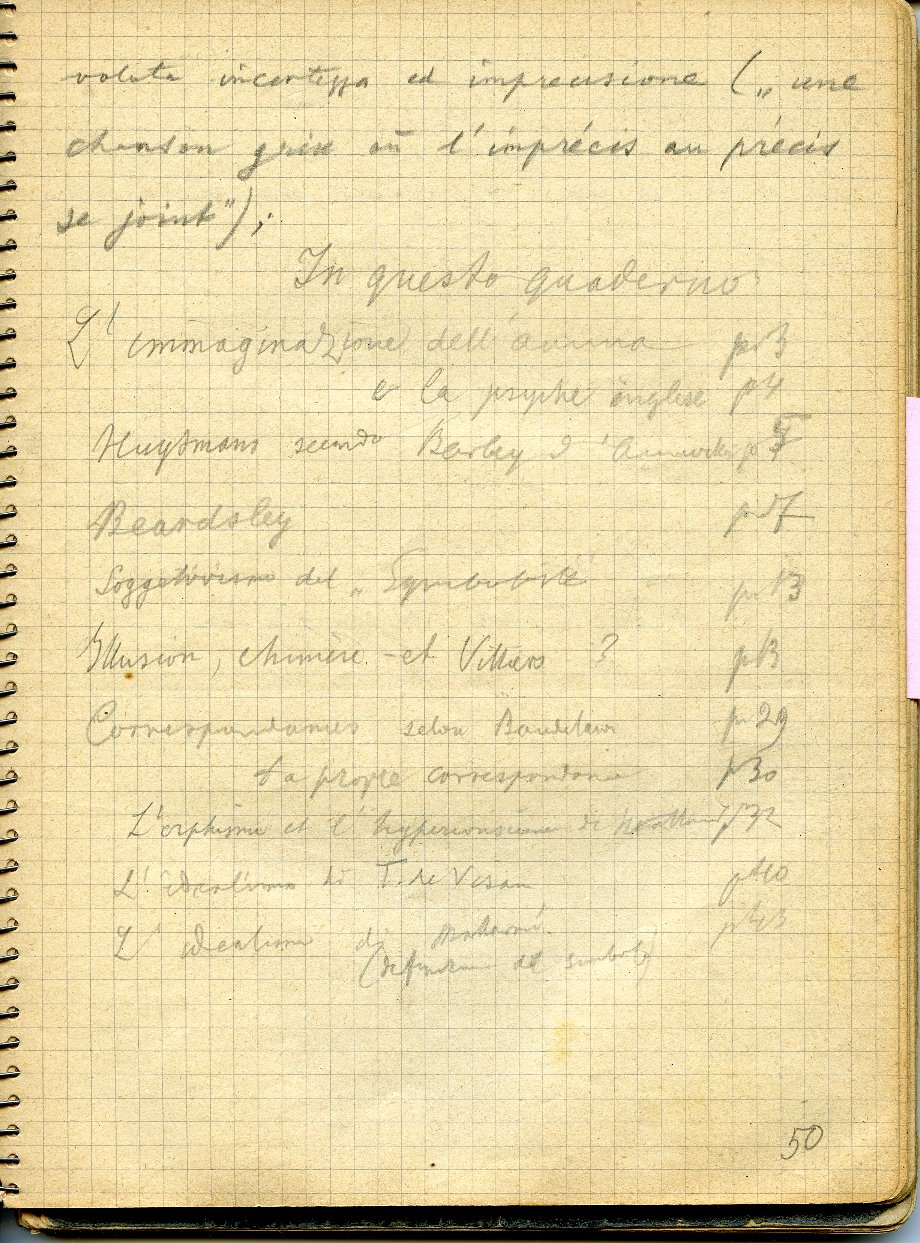 voluta incertezza ed imprecisione („ une
chanson grise où l'imprécis au précis
se joint");
In questo quaderno
L'immaginazione dell'anima p. 3
e la psyche inglese p 4
Huysmans secondo Barbey d'Aurevilly p
Beardsley p. 7
Soggettivismo del „ Symboliste" p. 13
Illusion, chimère - et Villiers ? p 13
Correspondances selon Baudelaire p. 29
propre correspondance p 30
L'orphisme et l' di p 32
L'idealismo di T. de Visan p 40
L'idealismo di p 43
(definizione del simbolo)
50